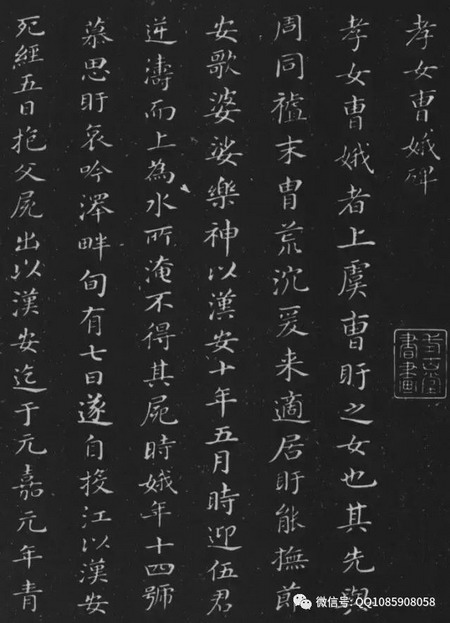 孝女曹娥碑
孝女曹娥者上虞曹盱之女也其先與
周同祖末胄荒沉爰来適居盱能撫節
安歌婆娑樂神以漢安十年五月時迎伍君
逆濤而上為水所淹不得其屍時娥年十四號
慕思盱哀吟澤畔旬有七日遂自投江以漢安
死經五日抱父屍出以漢安迄于元嘉元年青
書畫
微信号: QQ1085908058